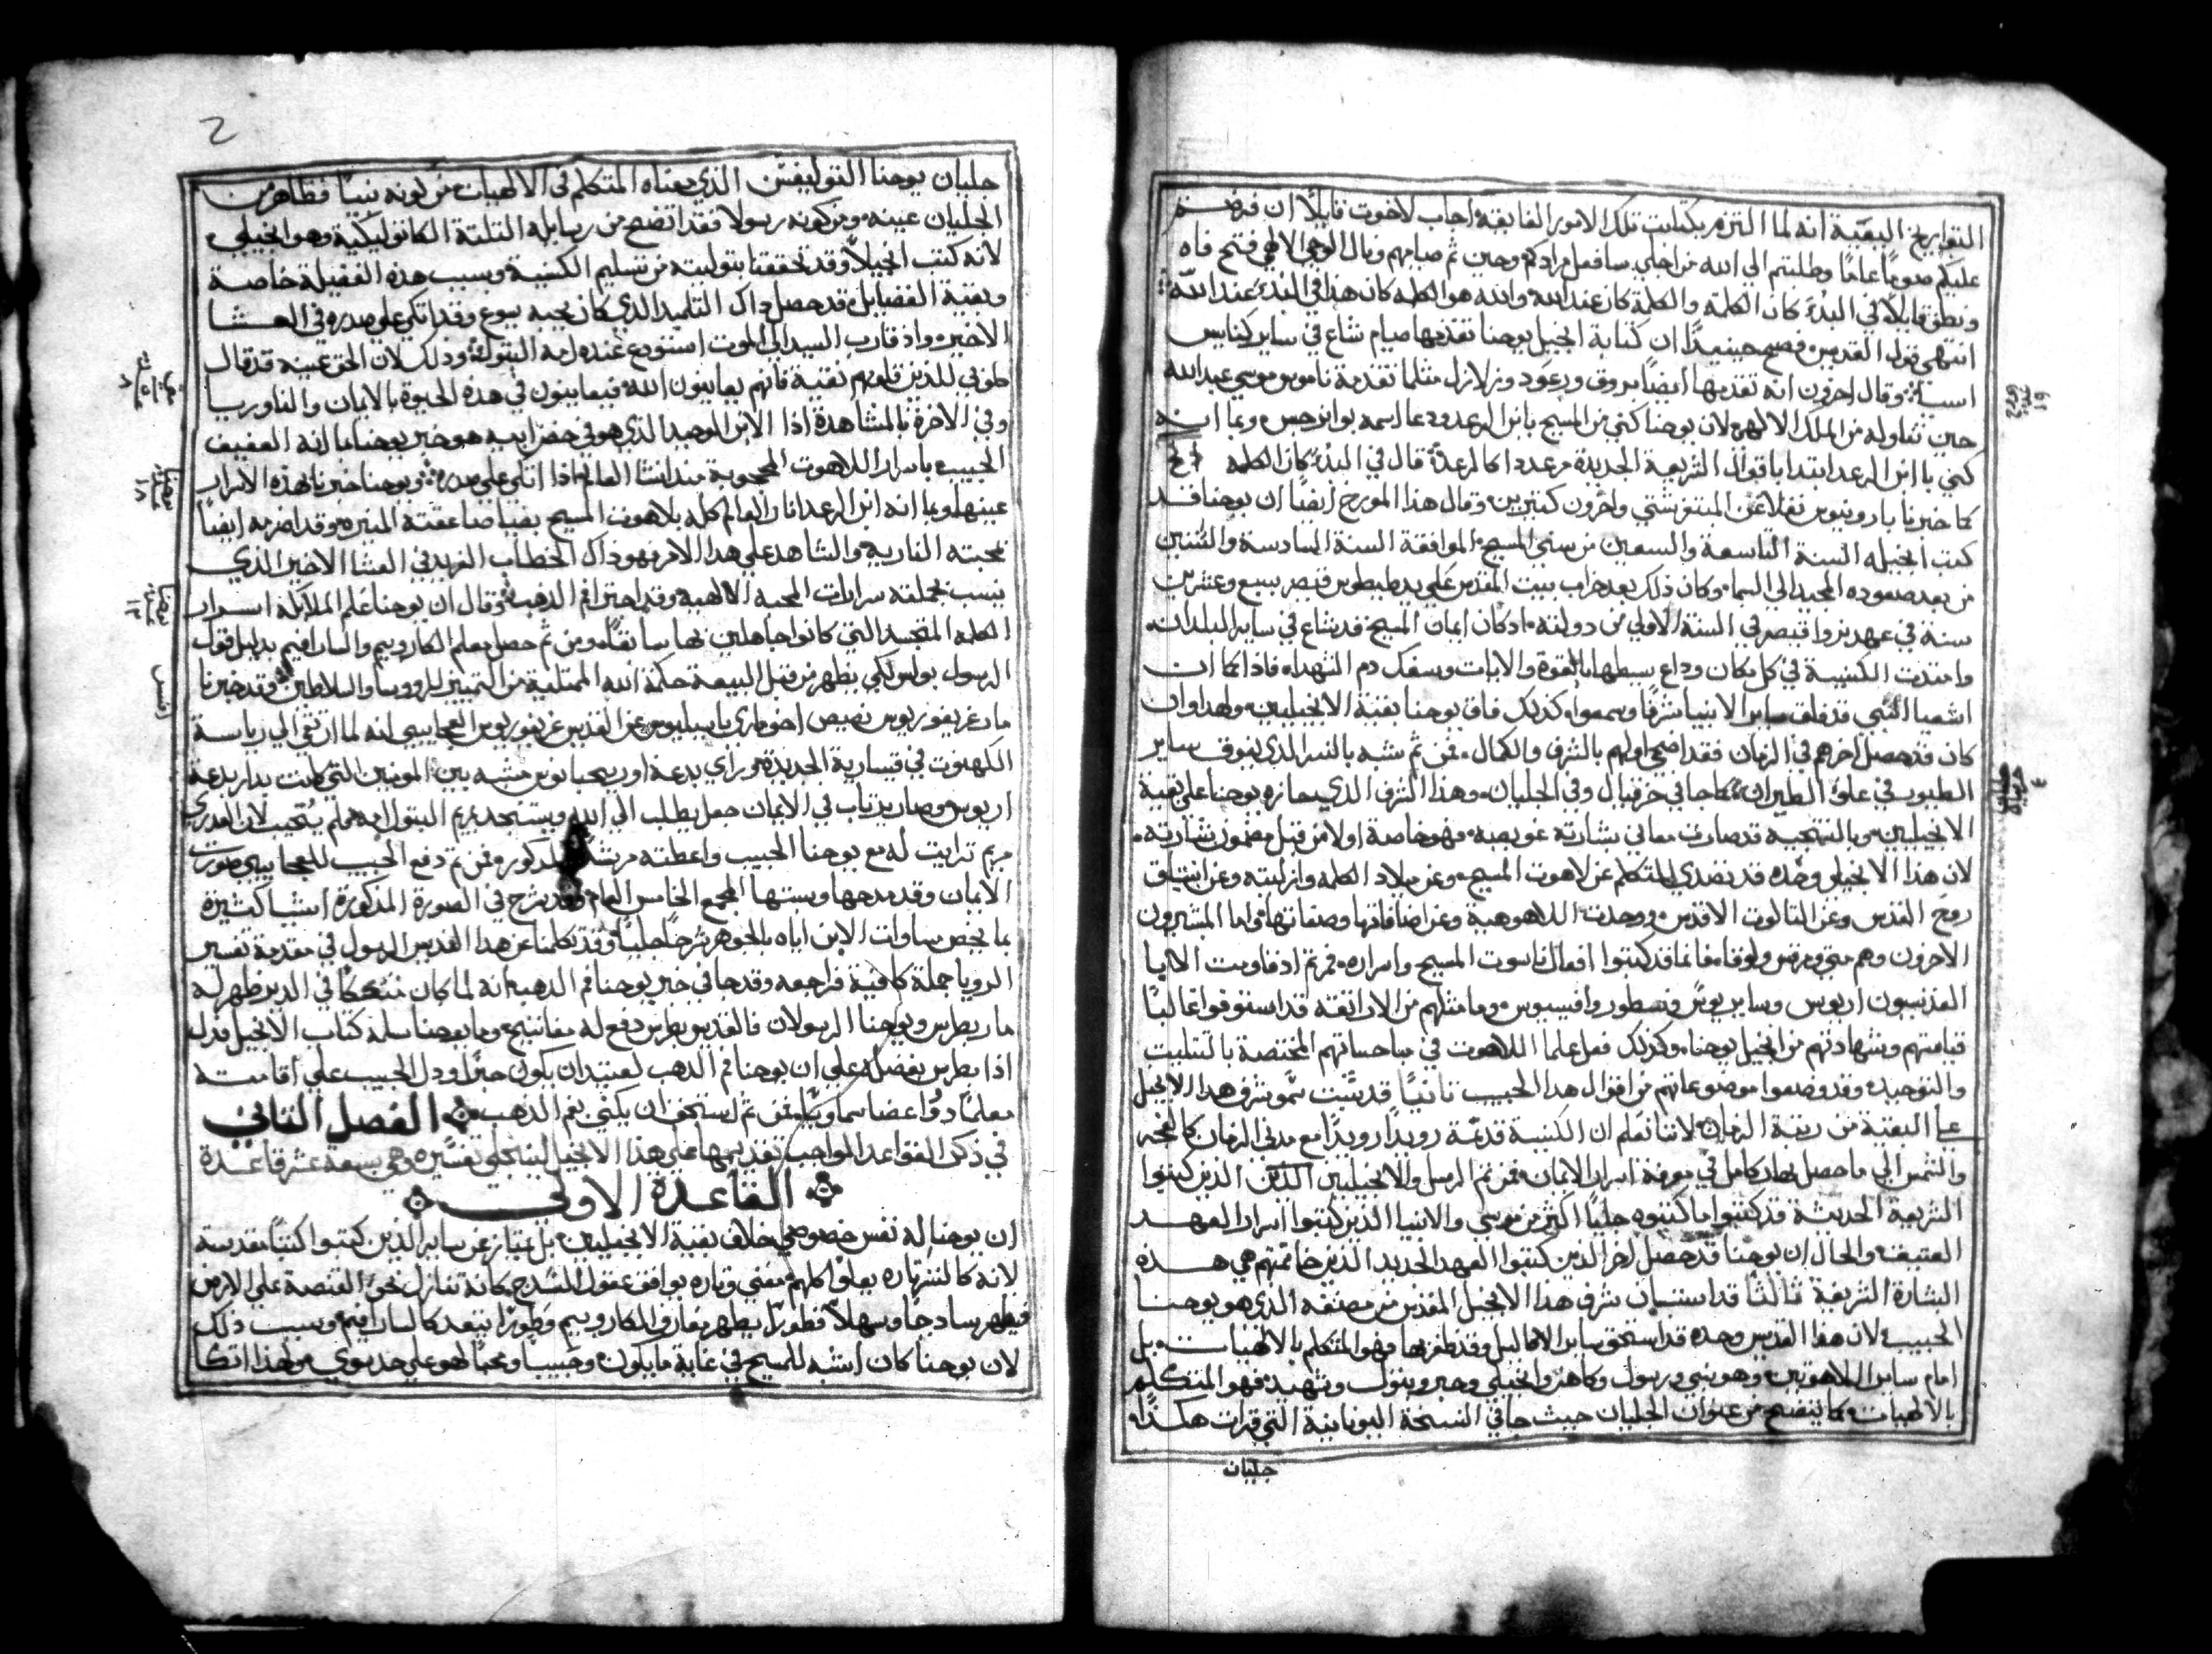 التواريخ البيعية انه لما التزم بكتابت تلك الامور الفايقة اجاب لاخوت قايلاً ان فرضتم
عليكم صوماً عاماً وطلبتم الي الله من اجلي سافعل مرادكم وحين تم صيامهم ونال الوحي الالهي فتح فاه
ونطق قايلاً في البدء كان الكلمة والكلمة كان عند الله والله هو الكلمه كان هذا في البدء عند الله
انتهي قول القديس فصح حينيذٍ ان كتابة انجيل يوحنا تقدمها صيام شاع في ساير كنايس
اسيا وقال اخرون انه تقدمها ايضاً بروق ورعود وزلازل مثلما تقدمة ناموس موسي عبد الله
حين تناوله من الملك الاله لان يوحنا كني من المسيح بابن الرعد ودعا اسمه بوانرجس وبما انه
كني با ابن الرعد ابتدا باقوال الشريعة الجديدة مرعدا كالرعد قال في البدء كان الكلمه الخ
كما خبرنا بارونيوس نقلا عن واخرون كثيرين وقال هذا المورخ ايضاً ان يوحنا قد
كتب انجيله السنة التاسعة والتسعين من سني المسيح الموافقة السنة السادسة والستين
من بعد صعوده المجيد الي السما وكان ذلك بعد خراب بيت المقدس علي يد طيطوس قيصر بسبع وعشرين
سنة في عهد نروا قيصر في السنة الاولي من دولته اذ كان ايمان المسيح قد شاع في ساير البلدان
وامتدت الكنيسة في كل مكان وذاع بسطها بالقوة والايات وسفك دم الشهداء فاذا كما ان
اشعيا النبي قد فاق ساير الانبيا شرفاً وسمواً كذلك فاق يوحنا بقية الانجيليين ولهذا وان
كان قد حصل اخرهم في الزمان فقد اضحي اولهم بالشرف والكمال فمن ثم شبه بالنسر الذي يفوق ساير
الطيور في علو الطيران كما جا في حزقيال وفي الجليان وهذا الشرف الذي حازه يوحنا علي بقية
الانجيليين وبالنتيجة قد صارت معاني بشارته عويصه فهو خاصة اولا من قبل مضمون بشارته
لان هذا الانجيلي وحده قد تصدي للتكلم عن لاهوت المسيح وعن ميلاد الكلمه وازليته وعن انبثاق
روح القدس وعن الثالوت الاقدس ووحدت اللاهوهية وعن اضافاتها وصفاتها واما المبشرون
الاخرون وهم متي ومرقس ولوقا فانما قد كتبوا افعال ناسوت المسيح واسراره فمن ثم اذ قاومت الابا
القديسون اريوس وسابريوس ونسطور وافسيوس وما مثلهم من الاراتقه قد استوفوا غالباً
قياساتهم وشهادتهم من انجيل يوحنا وكذلك فعل علما اللاهوت في مباحثاتهم المختصة بالتثليت
والتوحيد وقد وضعوا موضوعاتهم من اقوال هذا الحبيب ثانياً قد يثبت سمو شرف هذا الانجيل
علي البقية من رتبة الزمان لاننا نعلم ان الكنيسة قديمة رويداً رويداً مع مدي الزمان كالفجر
والشمس الي ما حصل نهار كامل في معرفة اسرار الايمان فمن ثم الرسل والانجيليين الذين الذين كتبوا
الشريعة الحديثة قد كتبوا ما كتبوه جلياً اكثر من موسي والانبيا الذين كتبوا اسرار العهد
العتيق والحال ان يوحنا قد حصل اخر الذين كتبوا العهد الجديد الذين خاتمتهم هي هذه
البشارة الشريفة ثالثاً قد استبان شرف هذا الانجيل المقدس من مصنفه الذي هو يوحنا
الحبيب لان هذا القديس وحده قد استحق ساير الاكاليل وقد ظفر بها فهو المتكلم بالالهيات بل
امام ساير اللاهوتيين وهو نبي ورسول وكاهن وانجيلي وحبر وبتول وشهيد فهو المتكلم
بالالهيات كما يتضح من عنوان الجليان حيث جا في النسخة اليونانية التي قرات هكذا
جليان
2
جليان يوحنا الذي معناه المتكلم في الالهيات من كونه نبياً فظاهر من
الجليان عينه ومن كونه رسولا فقد اتضح من رسايله التلتة الكاتوليكية وهو انجيلي
لانه كتب انجيلاً وقد تحققنا بتوليته من تسليم الكنيسة وبسبب هذه الفضيلة خاصة
وبقية الفضايل قد حصل ذاك التلميد الذي كان يحبه يسوع وقد اتكي علي صدره في العشا
الاخير واذ قارب السيد الي الموت استودع عنده امه البتول وذلك لان الحق عينه قد قال
طوبي للذين قلوبهم نقية فانهم يعاينون الله فيعاينون في هذه الحيوة بالايمان والتاوريا
وفي الاخرة بالمشاهدة اذا الابن الوحيد الذي هو في حضن ابيه هو خبر يوحنا بما انه العفيف
الحبيب باسرار اللاهوت المحجوبة منذ انشا العالم اذا اتكي علي صدره ويوحنا خبرنا بهذه الاسرار
عينها وبما انه ابن الرعد انار العالم كله بلاهوت المسيح بضيا صاعقته المنيره وقد اضرمه ايضاً
بمحبته النارية والشاهد علي هذا الامر فهو ذاك الخطاب الفريد في العشا الاخير الذي
ينسب بجملته سرايات المحبه الالهية وقد احتراقم الذهب وقال ان يوحنا علم الملايكة اسرار
الكلمه المتجسد التي كانوا جاهلين بها سابقاً ومن ثم حصل معلم الكاروبيم والسارافيم بدليل قول
الرسول بولس لكي يظهر من قبل البيعة حكمة الله الممتلية من التمييز للرووسا والسلاطين وقد خبرنا
مار غريغوريوس نصيص اخو ماري باسيليوس عن القديس غريغوريوس العجايبي انه لما ارتقي الي رياسة
الكهنوت في قيسارية الجديدة وراي بدعة اوريجيانوس مشبه بين المومنين التي كانت بدار بدعة
اريوس وصار يرتاب في الايمان جعل يطلب الي الله ويستنجد مريم البتول امه فلم يُخيب لان العدري
مريم ترايت له مع يوحنا الحبيب واعطته مرشداً المذكور ومن تم دفع الحبيب للعجايبي صورت
الايمان وقد مدحها وسنها المجمع الخامس العام وقد شرح في الصورة المذكورة اشيا كثيرة
بما يخص مساوات الابن اباه بالجوهر شرحاً جلياً وقد تكلمنا عن هذا القديس الرسول في مقدمة تفسير
الرويا جملة كافية فراجعه وقد جا في خبر يوحنا فم الدهب انه لما كان متنسكاً في الدير ظهر له
مار بطرس ويوحنا الرسولان فالقديس بطرس دفع له مفاتيح وما يوحنا سلمه كتاب الانجيل فدل
اذا بطرس بفضله علي ان يوحنا فم الدهب لعتيد ان يكون حبراً ودل الحبيب علي اقامته
معلماً ذو اعضا سماويه فمن ثم استحق ان يكني بفم الذهب الفصل التاني
في ذكر القواعد الواجب تقديمها علي هذا الانجيل لينجلي تفسيره وهي سبعة عشر قاعدة
القاعدة الاولي
ان يوحنا له نفس خصوصي خلاف بقية الانجيليين بل يمتاز عن ساير الذين كتبوا كتباً مقدسة
لانه كالنسر تاره يعلوا كلهم معني وتاره يوافق عقول السدج كانه تنازل نحو القنصة علي الارض
فيظهر سادجاً وسهلاً فطوراً يظهر يقارن الكاروبيم وطوراً يتقد كالسارافيم وسبب ذلك
لان يوحنا كان اشبه للمسيح في غاية ما يكون وحبيباً ومحباً لهو علي حد سوي ولهذا اتكا